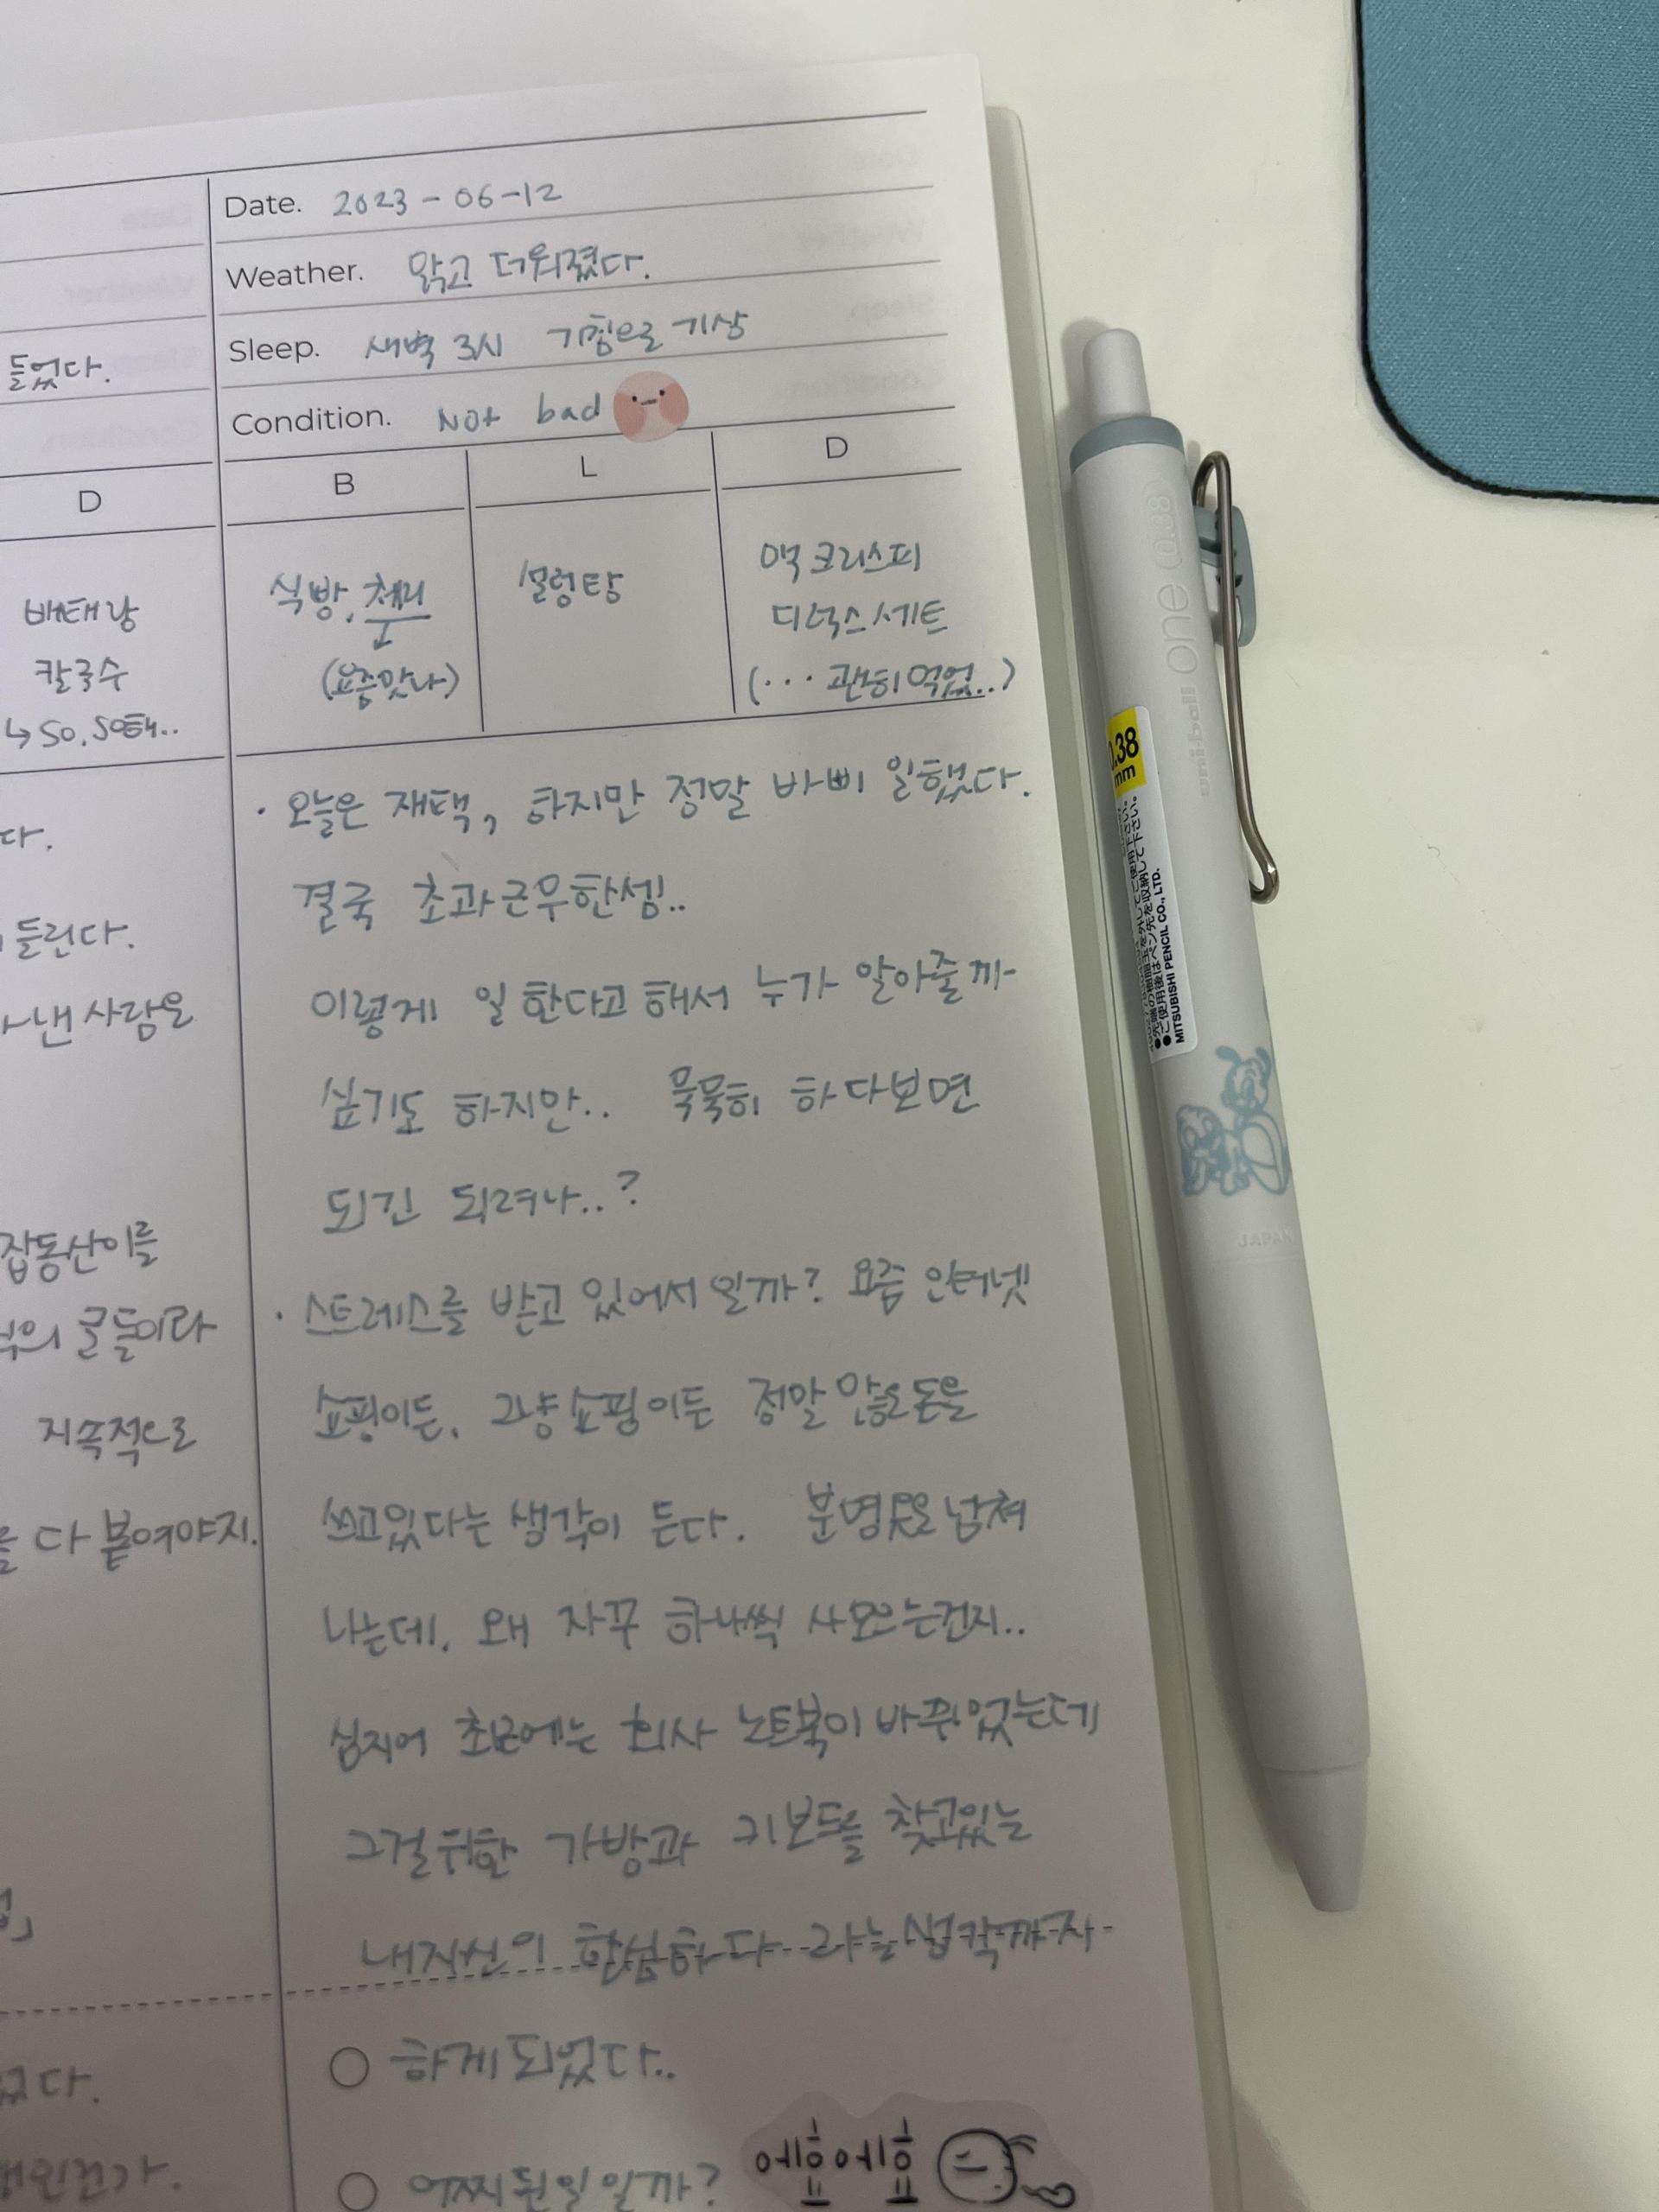 들었다.
D
배태랑
칼국수
↳ so, so해..
다.
들린다.
낸 사람은
잡동산이를
지속적으로
다 붙여야지.
Date. 2023-06-12
Weather. 맑고 더워졌다.
Sleep. 새벽 3시 기침으로 기상
Condition. Not bad
B
L
D
식빵, 체리
↓
(요즘맛나)
설렁탕
맥크리스피
디럭스세트
(... 괜히먹었..)
· 오늘은 재택, 하지만 정말 바삐 일했다.
결국 초과근무한셈..
이렇게 일 한다고 해서 누가 알아줄까
싶기도 하지만.. 묵묵히 하다보면
되긴 되려나..?
· 스트레스를 받고 있어서 일까? 요즘 인터넷
쇼핑이든, 그냥쇼핑이든 정말 많은돈을
쓰고있다는 생각이 든다. 분명 넘쳐
나는데, 왜 자꾸 하나씩 사모으는건지..
심지어 최근에는 회사 노트북이 바뀌었는데
그걸위한 가방과 키보드를 찾고있는
내자신이 한심하다 라는생각까지
하게되었다..
어찌된일일까?
에휴에휴
uni-ball One 0.38
0.38
mm
●ご使用後はペン先を収納して下さい。
MITSUBISHI PENCIL CO., LTD.
JAPAN